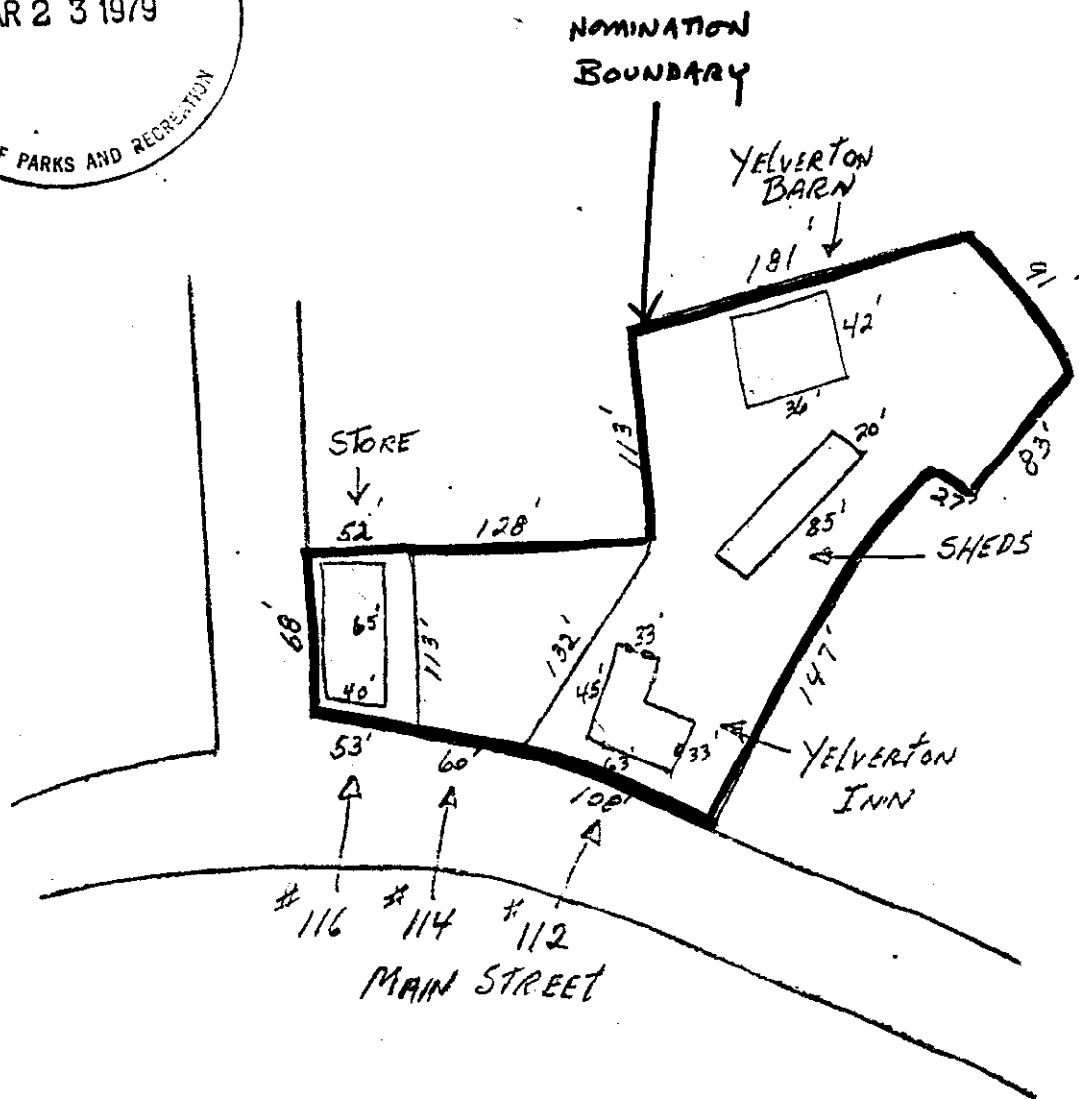 AR 2 3 1979
F PARKS AND RECREATION
NOMINATION
BOUNDARY
YELVERTON
BARN
181'
42'
36'
113'
20'
83'
27'
85'
SHEDS
STORE
52'
128'
68'
65'
40'
113'
132'
33'
45'
63'
33'
147'
YELVERTON
INN
53'
60'
100'
#116
#114
#112
MAIN STREET